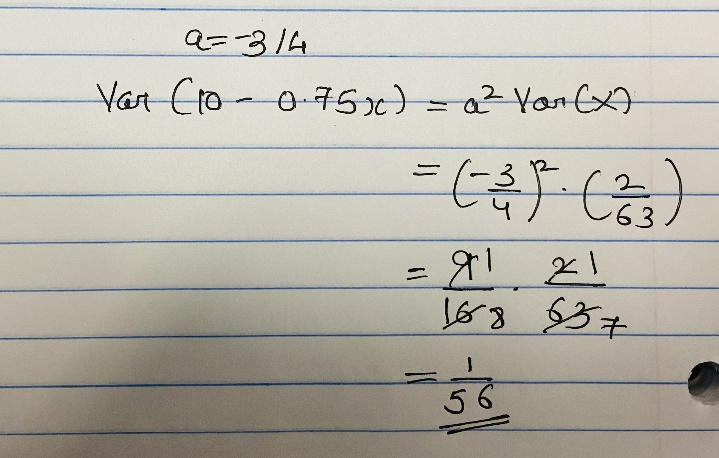 a = -3/4
Var (10 - 0.75x) = a² Var(X)
= (-3/4)² · (2/63)
= 9 1/16 8 · 2 1/63 7
= 1/56